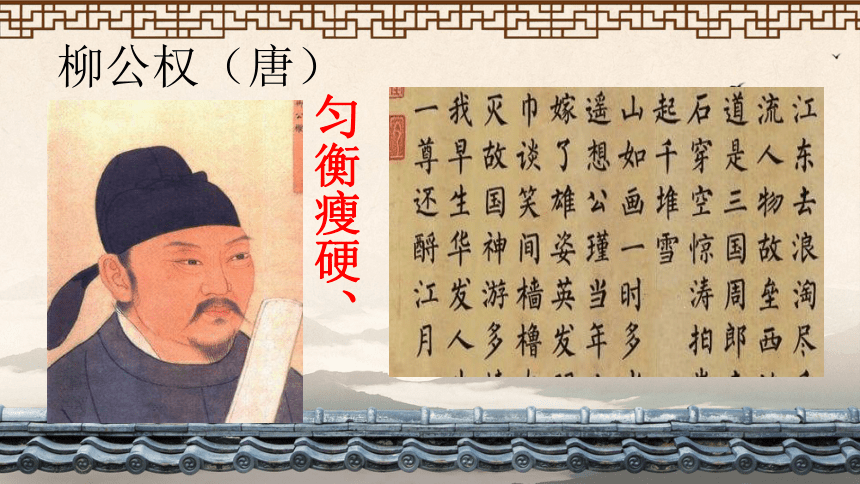 柳公权（唐）
匀衡瘦硬、
江东去浪淘尽
流人物故垒西
道是三国周郎
石穿空惊涛拍
起千堆雪
山如画一时多
遥想公瑾当年
嫁了雄姿英发
巾谈笑间樯橹
灭故国神游多
我早生华发人
一尊还酹江月